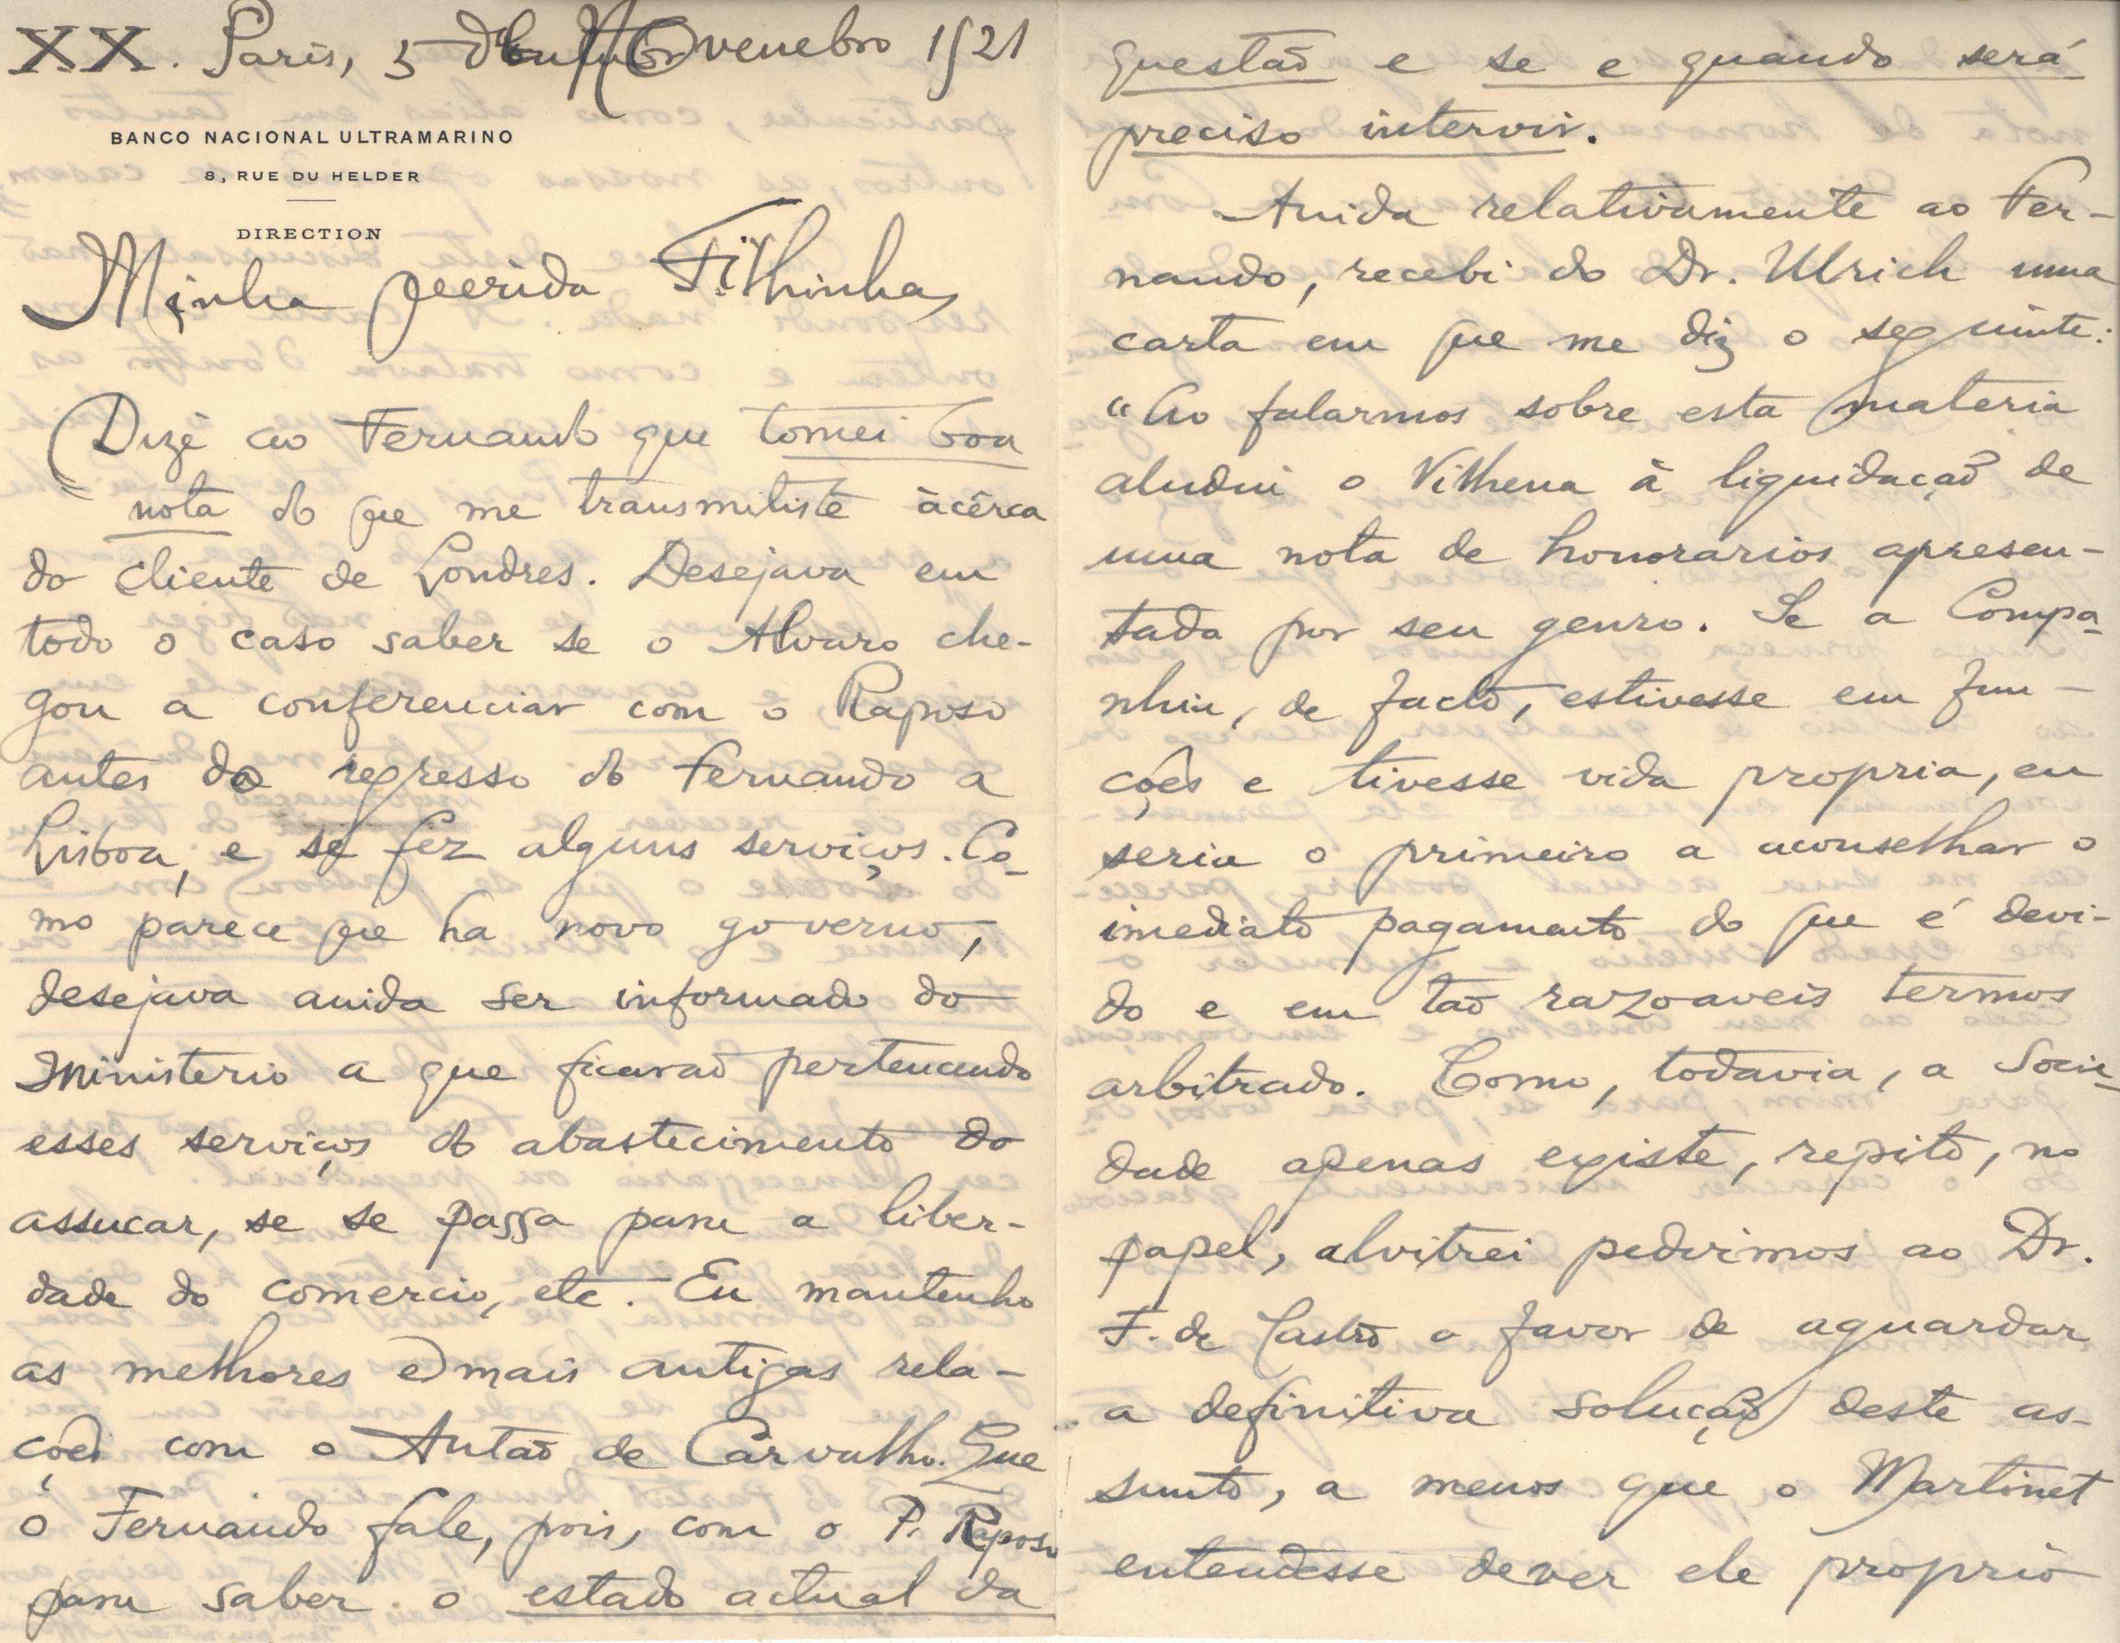 XX. Paris, 5 de Novembro 1921
BANCO NACIONAL ULTRAMARINO
8, RUE DU HELDER
DIRECTION
Minha querida Filhinha,
Dize ao Fernando que tomei boa
nota do que me transmitiste àcêrca
do cliente de Londres. Desejava em
todo o caso saber se o Alvaro che-
gou a conferenciar com o Raposo
antes do regresso do Fernando a
Lisboa, e se fez alguns serviços. Co-
mo parece que ha novo governo,
desejava ainda ser informado do
Ministerio a que ficarão pertencendo
esses serviços do abastecimento do
assucar, se se passa para a liber-
dade do comercio, etc. Eu mantenho
as melhores e mais antigas rela-
ções com o Antão de Carvalho. Que
o Fernando fale, pois, com o P. Raposo
para saber o estado actual da
questão e se e quando será
preciso intervir.
Ainda relativamente ao Fer-
nando, recebi do Dr. Ulrich uma
carta em que me diz o seguinte:
"Ao falarmos sobre esta materia
aludiu o Vilhena à liquidação de
uma nota de honorarios apresen-
tada por seu genro. Se a Compa-
nhia, de facto, estivesse em fun-
ções e tivesse vida propria, eu
seria o primeiro a aconselhar o
imediato pagamento do que é devi-
do e em tão razoaveis termos
arbitrado. Como, todavia, a Socie-
dade apenas existe, repito, no
papel, alvitrei pedirmos ao Dr.
F. de Castro o favor de aguardar
a definitiva solução deste as-
sunto, a menos que o Martinet
entendesse dever ele proprio